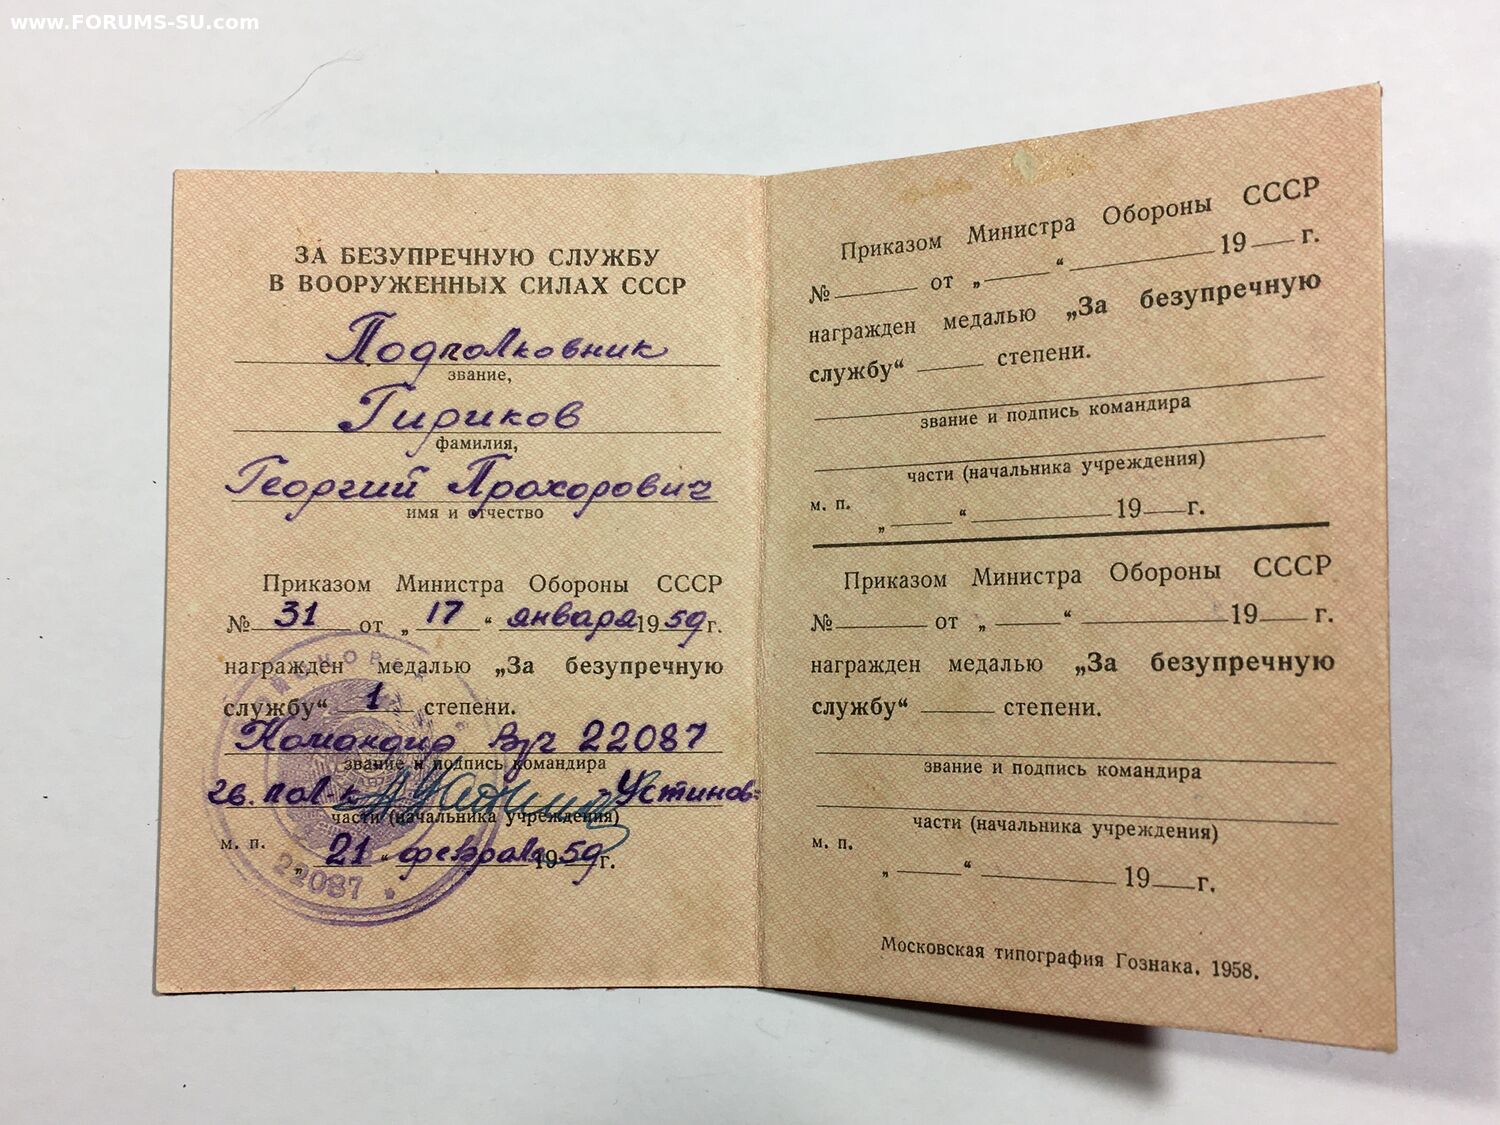 www.FORUMS-SU.com
ЗА БЕЗУПРЕЧНУЮ СЛУЖБУ
В ВООРУЖЕННЫХ СИЛАХ СССР
Подполковник
звание,
Гириков
фамилия,
Георгий Прохорович
имя и отчество
Приказом Министра Обороны СССР
№ 31 от „ 17 “ января 1959 г.
награжден медалью „За безупречную
службу“ 1 степени.
Командир в/ч 22087
звание и подпись командира
гв. пол-к -Устинов-
части (начальника учреждения)
м. п. „ 21 “ февраля 1959 г.
22087 *
Приказом Министра Обороны СССР
№ от „ “ 19 г.
награжден медалью „За безупречную
службу“ степени.
звание и подпись командира
части (начальника учреждения)
м. п.
„ “ 19 г.
Приказом Министра Обороны СССР
№ от „ “ 19 г.
награжден медалью „За безупречную
службу“ степени.
звание и подпись командира
части (начальника учреждения)
м. п.
„ “ 19 г.
Московская типография Гознака. 1958.